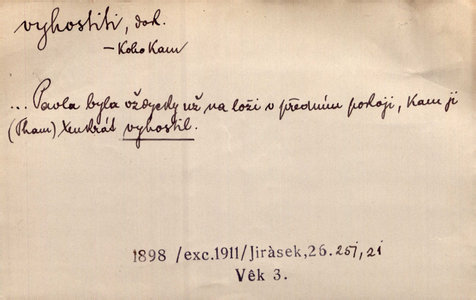 vyhostiti, dok.
— Koho Kam
... Pavla byla vždycky už na loži v předním pokoji, Kam ji
(Tham) Xenkrát vyhostil.
1898 /exc.1911/Jiràsek,26. 251, 21
Vêk 3.